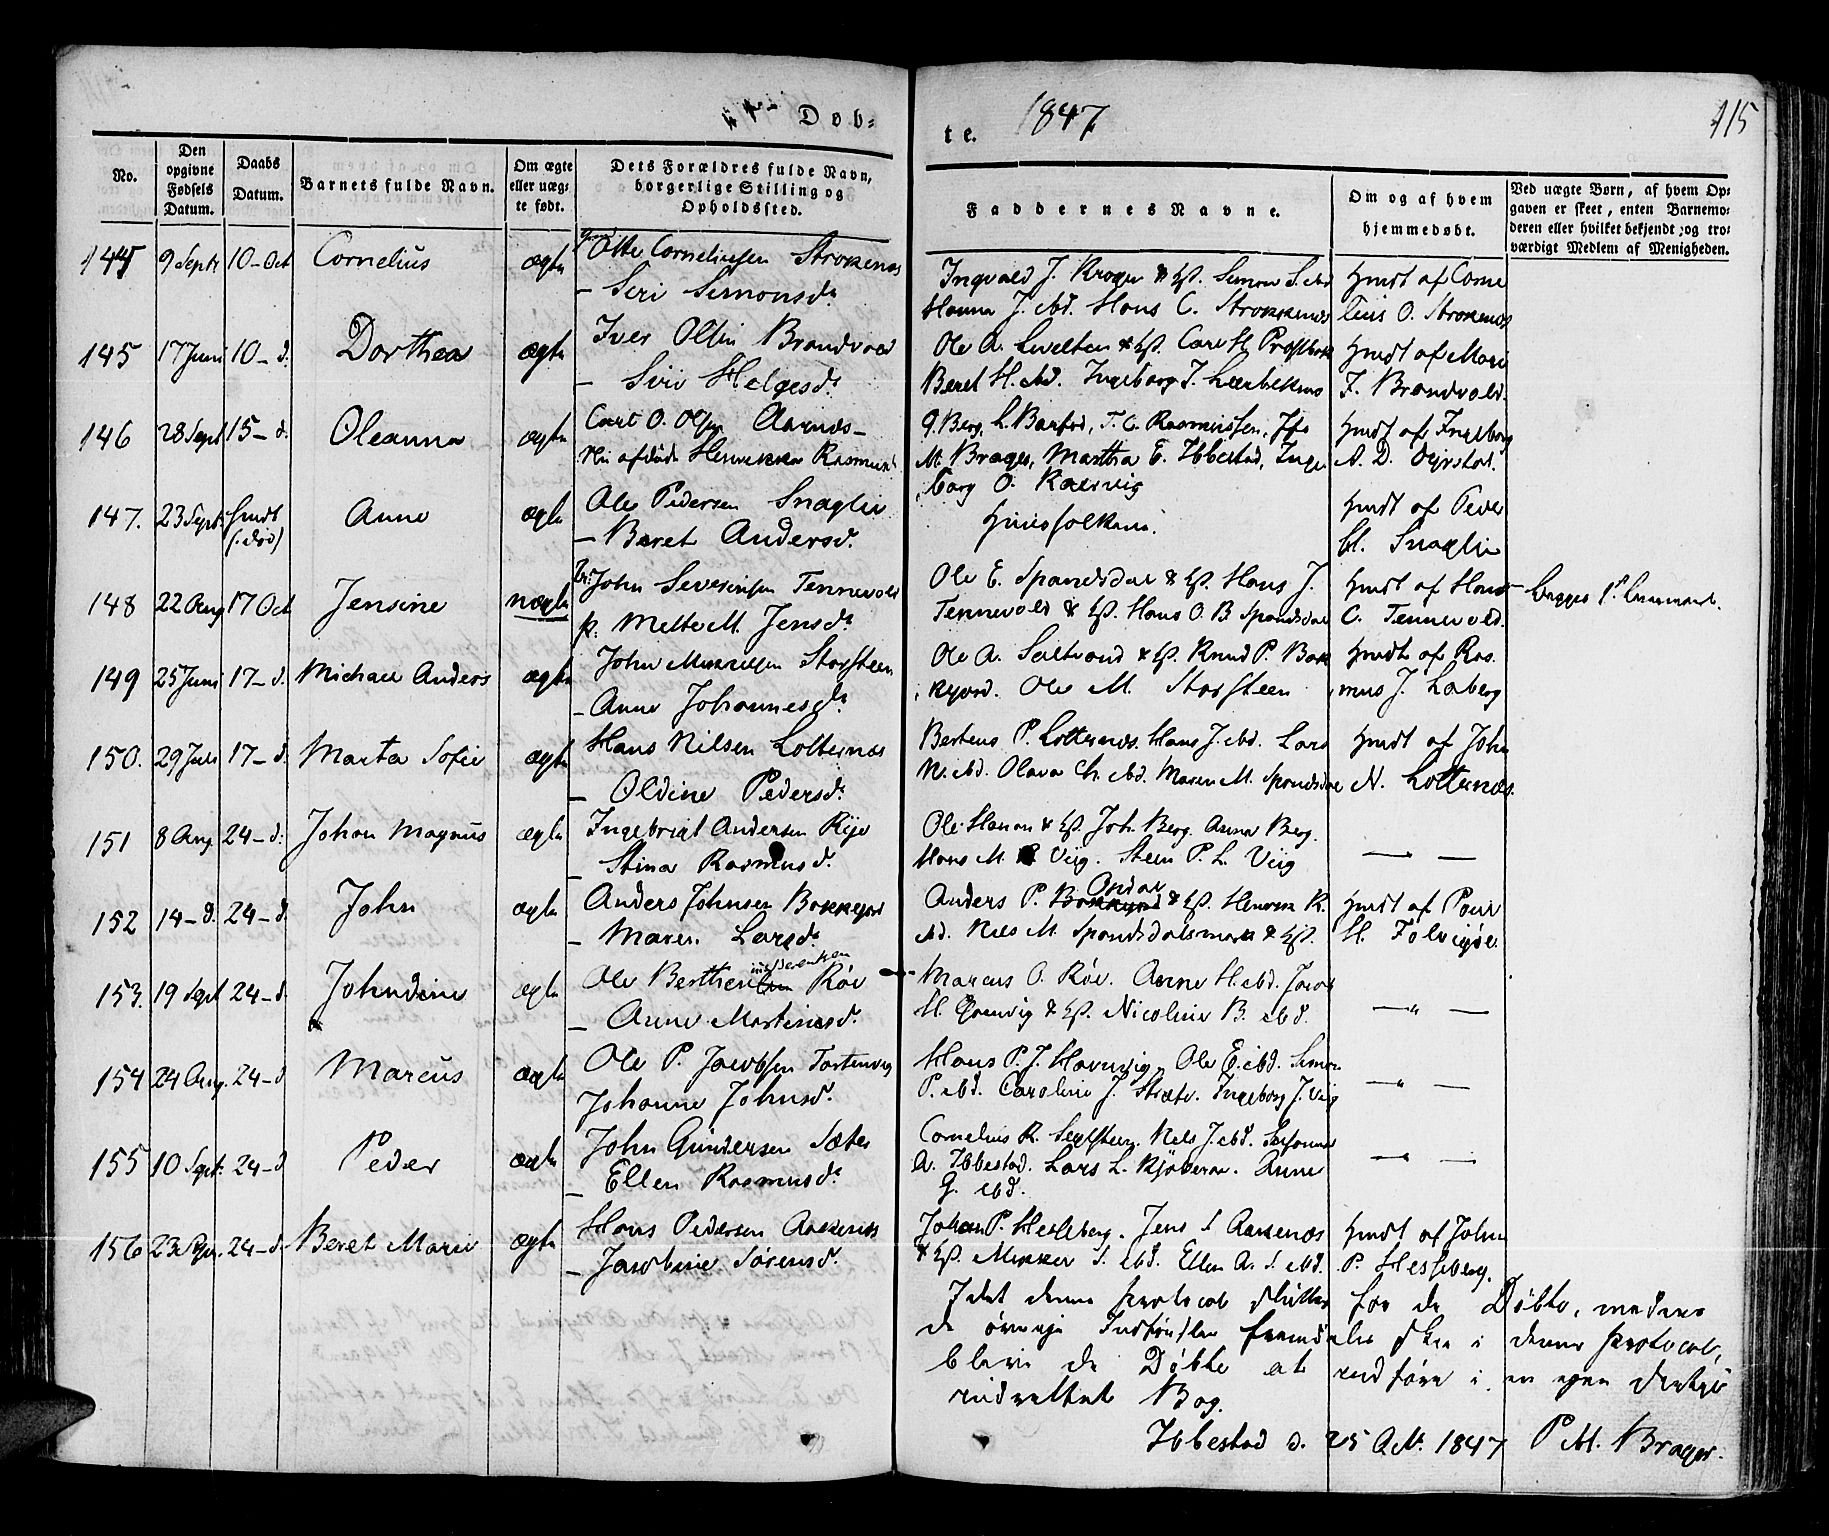 Døb-
te. 1847
115
No.
Den opgivne Fødsels Datum.
Daabs Datum.
Barnets fulde Navn.
Om ægte eller uæg-te født.
Dets Forældres fulde Navn, borgerlige Stilling og Opholdssted.
Faddernes Navne.
Om og af hvem hjemmedøbt.
Ved uægte Børn, af hvem Op-gaven er skeet, enten Barnemo-deren eller hvilket bekjendt, og tro-værdigt Medlem af Menigheden.
144 9 Septr 10-Oct Cornelius ægte Otte Corneliussen Strokenes
- Seri Simonsd.
Ingvald J. Kroger & Simon S. ebd
Hanna J. ebd. Hans C. Strokkenes
Hmdt af Corne
lius O. Strokenes
145 17 Juni 10-d. Dorthea ægte Iver Olsen Brandvold
- Siri Helgesd.
Ole A.
Beret H. ebd. Ingeborg J.
Hmdt af Mari
J. Brandvold.
146 28 Sept 15-d. Oleanna ægte Carl O. Olsen Aarnes-
Nu afdøde Henrikka Rasmusd.
Q. Berg, L. Barfod, T. C. Rasmussen,
M. Brager, Martha E. Ibbestad, Inge
borg O. Kaersvig
Hmdt af Ingeborg
A. D.
147. 23 Sept. hmdt
(: død) Anne ægte Ole Pedersen Snaglie
- Beret Andersd.
Huusfolkene.
Hmdt af Peder
Snaglie
148 22 Aug 17 Oct Jensine uægte John Severinsen Tennevold
p. Mette M. Jensd.
Ole E. Spandsdal & Hans J.
Tennevold & Hans O. B. Spandsdal
Hmdt af Hans
C. Tennevold.
Begges 1ste
149 25 Juni 17-d. Michael Anders ægte John Mikkelsen Storsteen
- Anne Johannesd.
Ole A. & Knud P. Bok
kejord. Ole M. Storsteen
Hmdt af Ras
mus J. Loberg
150. 29 Juli 17-d. Marta Sofie ægte Hans Nilsen Lotternes
- Oldine Pedersd.
P. Lotternes. Hans J. ebd. Lars
N. ebd. Olava Ch. ebd. Maren M. Spandsdal
Hmdt af John
N. Lotternes.
151 8 Aug 24-d. Johan Magnus ægte Ingebrigt Andersen Rye
- Stina Rasmusd.
Ole Hanan & Joh. Berg. Anna Berg.
Hans M. Viig. Steen P. L. Viig
— —
152 14-d. 24-d. John ægte Anders Johnsen Bokkejord
- Maren Larsd.
Anders P. & Henrik K.
ebd. Nils M. Spandsdalsmark &
Hmdt af Poul
H.
153. 19 Sept 24-d. Johndine ægte Ole Røe
- Anne Martinusd.
Marcus O. Røe. Anne H. ebd. Jacob
H. & Nicoline B. ebd.
— " —
154 24 Aug. 24-d Marcus ægte Ole P. Jacobsen
Johanne Johnsd.
Hans P. J. Ole E. ebd. Simon
P. ebd. Caroline J. Stræte. Ingeborg J. Viig
— " —
155 10 Sept. 24-d Peder ægte John Gundersen Sæter
- Ellen Rasmusd.
Cornelius R. Nels J. ebd.
A. Ibbestad. Lars L. Anne
G. ebd.
— " —
156 23 24-d. Beret Marie ægte Hans Pedersen Aakenes
- Jacobine Sørensd.
Johan P. Hesseberg. Jens S Aakenes
& Mikkel S. ebd. Ellen A. S ebd.
Hmdt af John
P. Hesseberg.
Idet denne Protocol sluttes for de Døbte, medens
de øvrige Indførsler fremdeles skee i denne Protocol,
blive de Døbte at indføre i en egen dertil
indrettet Bog.
Ibbestad d. 25 Oct. 1847 Brager.